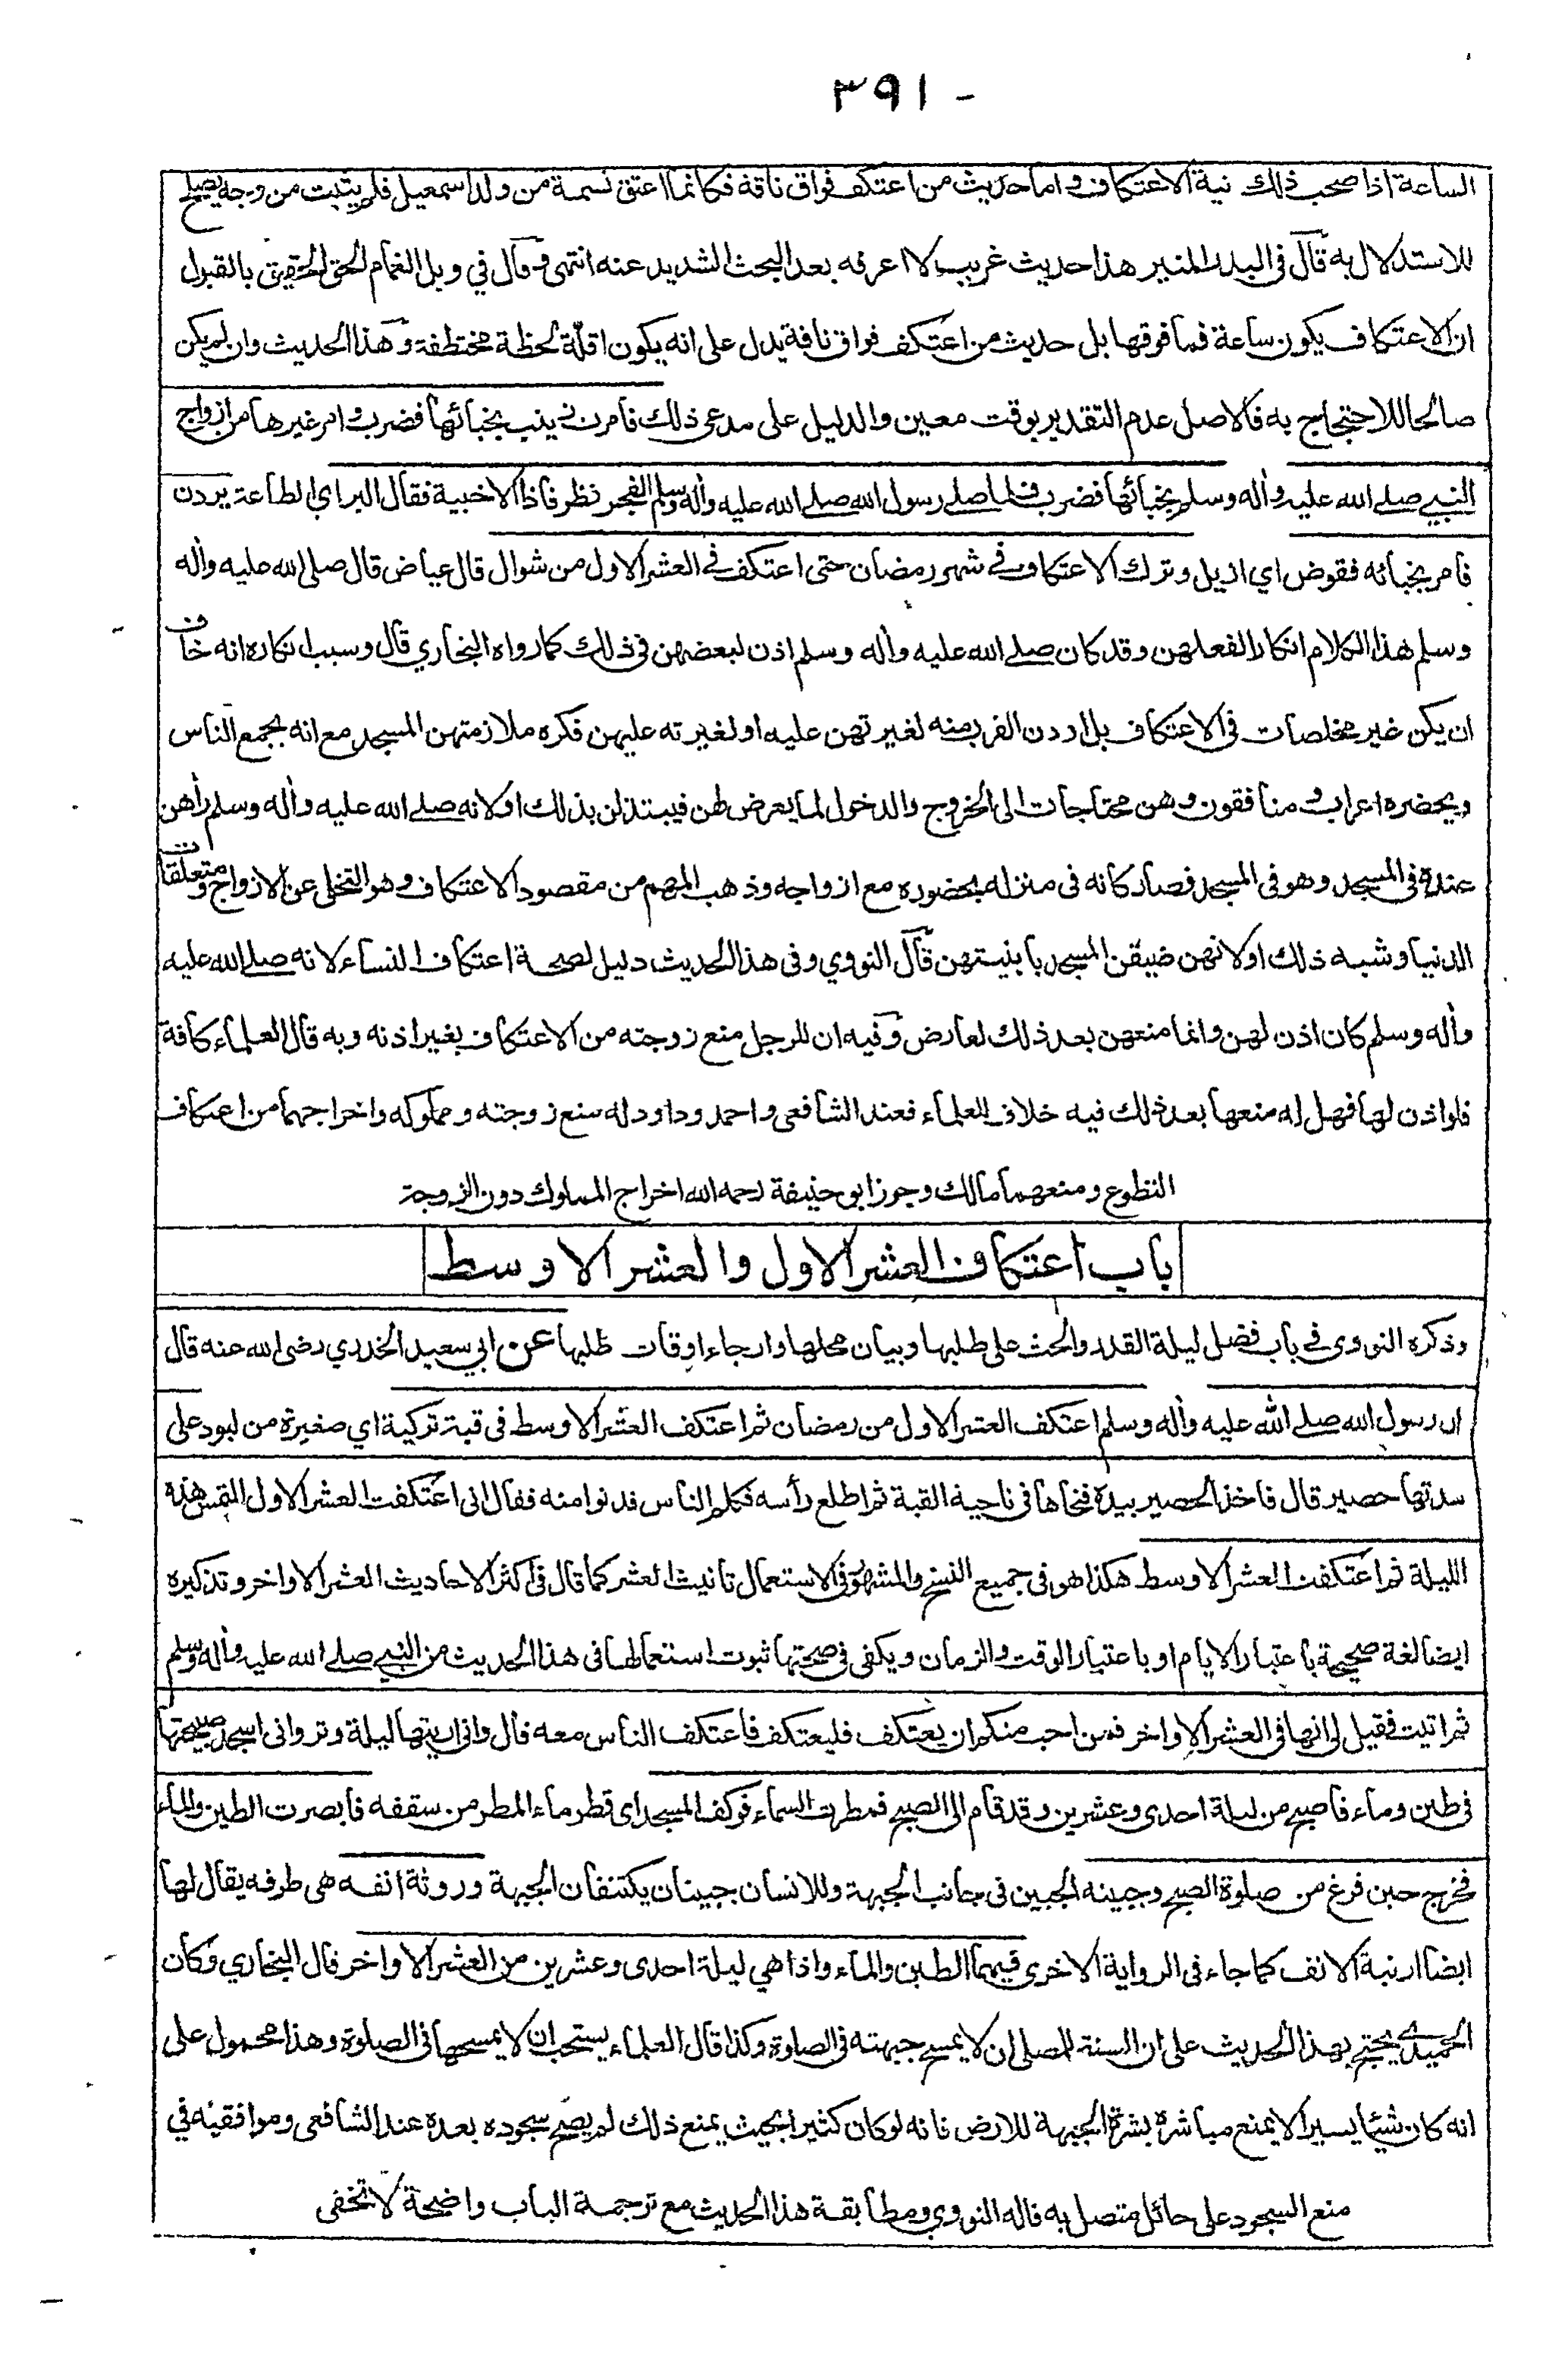 ٣٩١ -
الساعة اذا صحب ذلك نية الاعتكاف واما حديث من اعتكف فواق ناقة فكانما اعتق نسمة من ولد اسمعيل فلم يثبت من وجه يصلح
للاستدلال به قال في البدر المنير هذا حديث غريب لا اعرفه بعد البحث الشديد عنه انتهى وقال في وبل الغمام الحق الحقيق بالقبول
ان الاعتكاف يكون ساعة فما فوقها بل حديث من اعتكف فواق ناقة يدل على انه يكون اقلّة لحظة مختطفة وهذا الحديث وان لم يكن
صالحا للاحتجاج به فالاصل عدم التقدير بوقت معين والدليل على مدعى ذلك فامرت زينب بخبائها فضرب وامر غيرها من ازواج
النبي صلے الله عليه وأله وسلم بخبائها فضرب فلما صلے رسول الله صلے الله عليه وأله وسلم الفجر نظر فاذا الاخبية فقال البر اي الطاعة يردن
فامر بخبائه فقوض اي ازيل وترك الاعتكاف في شهر رمضان حتى اعتكف في العشر الاول من شوال قال عياض قال صلى الله عليه وأله
وسلم هذا الكلام انكارا لفعلهن وقد كان صلے الله عليه وأله وسلم اذن لبعضهن في ذلك كما رواه البخاري قال وسبب انكاره انه خاف
ان يكن غير مخلصات في الاعتكاف بل اردن القرب منه لغيرتهن عليه او لغيرته عليهن فكره ملازمتهن المسجد مع انه يجمع الناس
ويحضره اعراب ومنافقون وهن محتاجات الى الخروج والدخول لما يعرض لهن فيبتذلن بذلك او لانه صلے الله عليه وأله وسلم رأهن
عنده في المسجد وهو في المسجد فصار كانه في منزله بحضوره مع ازواجه وذهب المهم من مقصود الاعتكاف وهو التخلي عن الازواج ومتعلقات
الدنيا وشبه ذلك او لانهن ضيقن المسجد بابنيتهن قال النووي وفي هذا الحديث دليل لصحة اعتكاف النساء لانه صلے الله عليه
وأله وسلم كان اذن لهن وانما منعهن بعد ذلك لعارض وفيه ان للرجل منع زوجته من الاعتكاف بغير اذنه وبه قال العلماء كافة
فلو اذن لها فهل له منعها بعد ذلك فيه خلاف للعلماء فعند الشافعي واحمد وداود له منع زوجته ومملوكه واخراجهما من اعتكاف
التطوع ومنعهما مالك وجوز ابو حنيفة رحمه الله اخراج المملوك دون الزوجة
باب اعتكاف العشر الاول والعشر الاوسط
وذكره النووي في باب فضل ليلة القدر والحث على طلبها وبيان محلها وارجاء اوقات طلبها عن ابي سعيد الخدري رضي الله عنه قال
ان رسول الله صلے الله عليه وأله وسلم اعتكف العشر الاول من رمضان ثم اعتكف العشر الاوسط في قبة تركية اي صغيرة من لبود على
سدتها حصير قال فاخذ الحصير بيده فنحاها في ناحية القبة ثم اطلع رأسه فكلم الناس فدنوا منه فقال اني اعتكفت العشر الاول التمس هذه
الليلة ثم اعتكفت العشر الاوسط هكذا هو في جميع النسخ والمشهور في الاستعمال تانيث العشر كما قال في اكثر الاحاديث العشر الاواخر وتذكيره
ايضا لغة صحيحة باعتبار الايام او باعتبار الوقت والزمان ويكفي في صحتها ثبوت استعمالها في هذا الحديث من النبي صلے الله عليه وأله وسلم
ثم اتيت فقيل لي انها في العشر الاواخر فمن احب منكم ان يعتكف فليعتكف فاعتكف الناس معه قال واني اريتها ليلة وتر واني اسجد صبيحتها
في طين وماء فاصبح من ليلة احدى وعشرين وقد قام الى الصبح فمطرت السماء فوكف المسجد اي قطر ماء المطر من سقفه فابصرت الطين والماء
فخرج حين فرغ من صلوة الصبح وجبينه الجبين في جانب الجبهة وللانسان جبينان يكتنفان الجبهة وروثة انفه هي طرفه يقال لها
ايضا ارنبة الانف كما جاء في الرواية الاخرى فيهما الطين والماء واذا هي ليلة احدى وعشرين من العشر الاواخر قال البخاري وكان
الحميدي يحتج بهذا الحديث على ان السنة للمصلي ان لا يمسح جبهته في الصلوة وكذا قال العلماء يستحب ان لا يمسحها في الصلوة وهذا محمول على
انه كان شيئا يسيرا لا يمنع مباشرة بشرة الجبهة للارض فانه لو كان كثيرا بحيث يمنع ذلك لم يصح سجوده بعده عند الشافعي وموافقيه في
منع السجود على حائل متصل به قاله النووي ومطابقة هذا الحديث مع ترجمة الباب واضحة لا تخفى